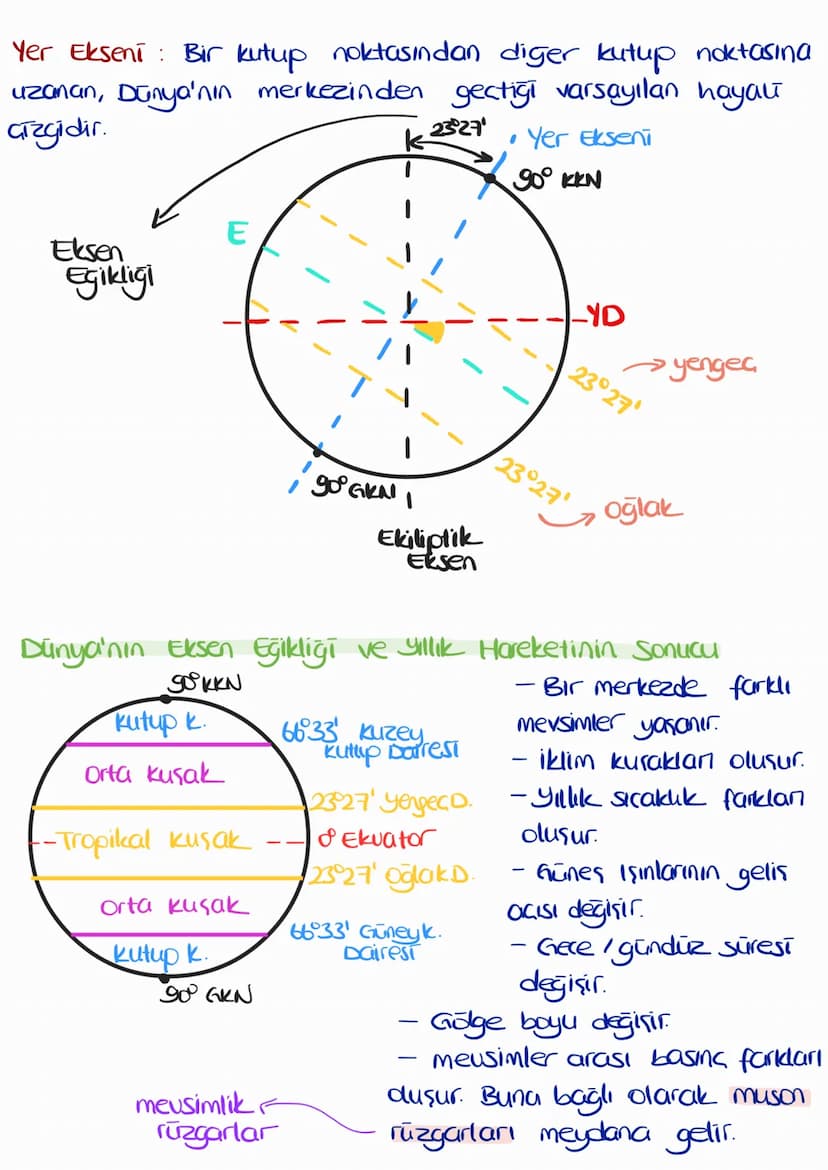 Yer Ekseni : Bir kutup noktasından diğer kutup noktasına
uzanan, Dünya'nın merkezinden geçtiği varsayılan hayali
çizgidir.
23°27'
Yer Ekseni
90° KKN
Eksen
Eğikliği
E
YD
23°27'
yengeç
23°27'
oğlak
90° GKN
Ekiliptik
Eksen
Dünya'nın Eksen Eğikliği ve Yıllık Hareketinin Sonucu
90° KKN
Kutup k.
66°33' Kuzey
Kutup Dairesi
Orta Kuşak
23°27' Yengeç D.
Tropikal Kuşak
0° Ekvator
23°27' Oğlak D.
Orta Kuşak
66°33' Güney k.
Dairesi
Kutup k.
90° GKN
- Bir merkezde farklı
mevsimler yaşanır.
- İklim kuşakları oluşur.
- Yıllık sıcaklık farkları
oluşur.
- Güneş ışınlarının geliş
açısı değişir.
- Gece / gündüz süresi
değişir.
- Gölge boyu değişir.
- mevsimler arası basınç farkları
oluşur. Buna bağlı olarak muson
rüzgarları meydana gelir.
mevsimlik
rüzgarlar